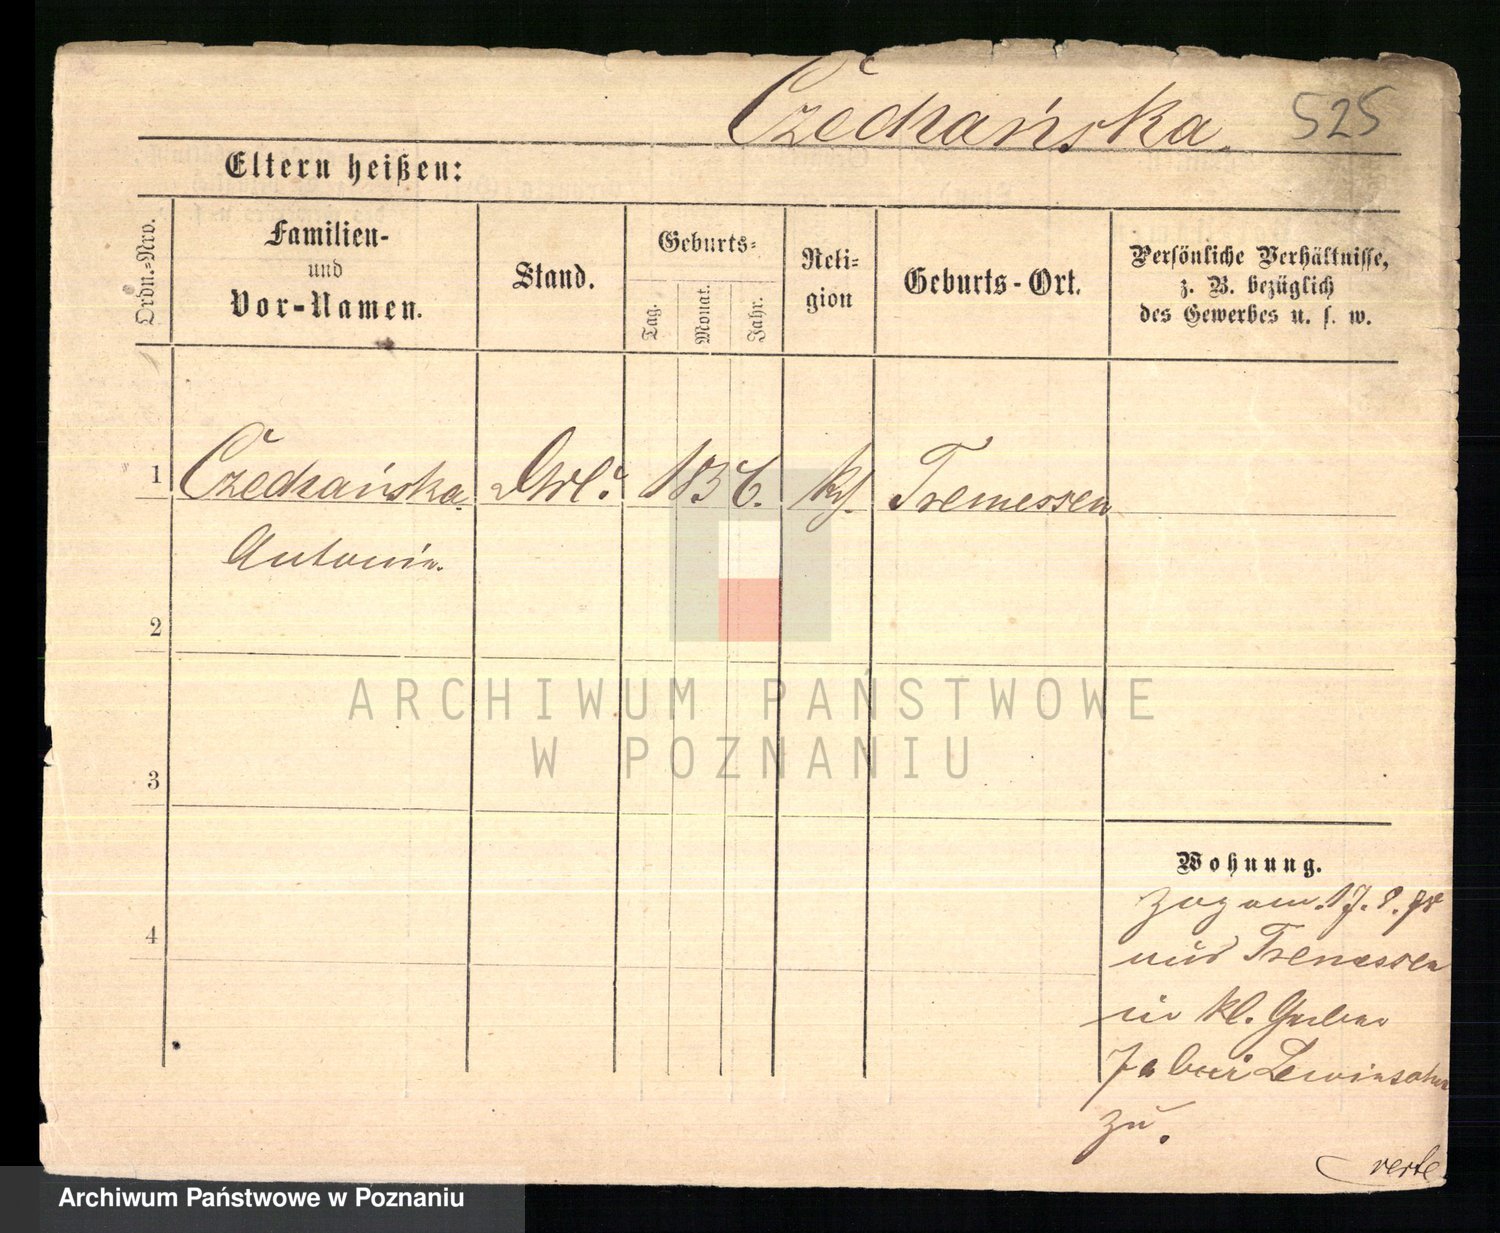 Czechańska.
525
Eltern heißen:
Ordn.-Nro.
Familien-
und
Vor-Namen.
Stand.
Geburts-
Tag.
Monat.
Jahr.
Reli-
gion
Geburts-Ort.
Persönliche Verhältnisse,
z. B. bezüglich
des Gewerbes u. s. w.
1
Czechańska
1856.
Tremessen
Antonie.
2
3
4
Wohnung.
zog am 17. 8.
aus Tremessen
in kl. Gerber
bei Lewinsohn
zu.
verte
ARCHIWUM PAŃSTWOWE
W POZNANIU
Archiwum Państwowe w Poznaniu